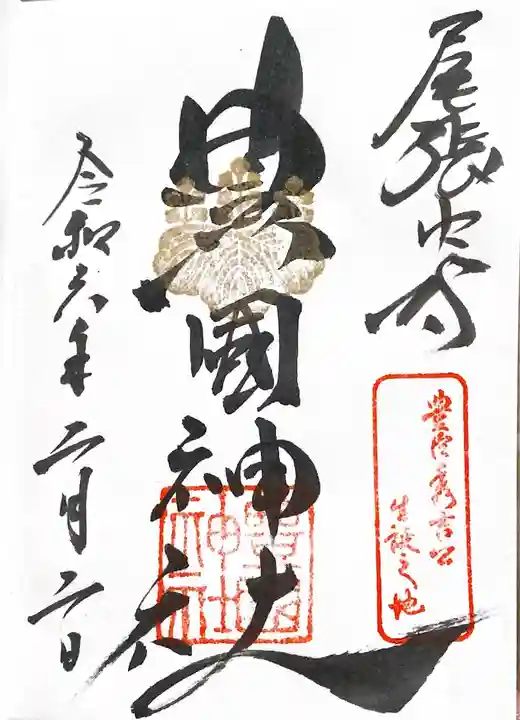 尾張中村
豊臣秀吉公
生誕之地
豊國神社
豊國神社
令和六年二月二日